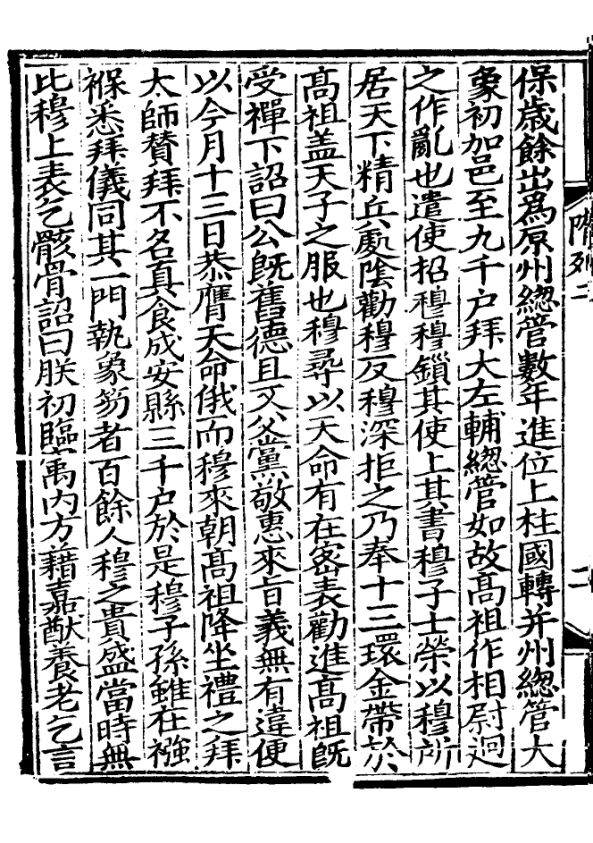 隋列二
二
保歲餘出爲原州緫管數年進位上柱國轉并州緫管大
象初加邑至九千户拜大左輔緫管如故髙祖作相尉迥
之作亂也遣使招穆穆鎖其使上其書穆子士榮以穆所
居天下精兵處陰勸穆反穆深拒之乃奉十三環金帶於
髙祖盖天子之服也穆尋以天命有在密表勸進髙祖旣
受禪下詔曰公旣舊德且又父黨敬惠來旨義無有違便
以今月十三日恭膺天命俄而穆來朝髙祖降坐禮之拜
太師賛拜不名真食成安縣三千户於是穆子孫雖在襁
褓悉拜儀同其一門執象笏者百餘人穆之貴盛當時無
比穆上表乞骸骨詔曰朕初臨㝢内方藉嘉猷養老乞言